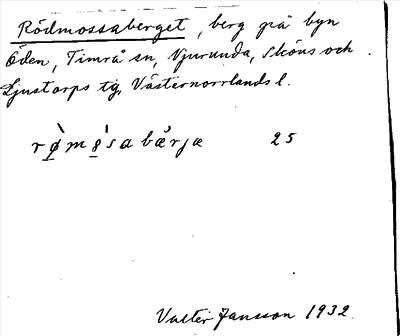 Rödmossaberget, berg på byn
Öden, Timrå sn, Njurunda, Sköns och
Ljustorps tg, Västernorrlands l.
rø̀mosabǽrjæ 25
Valter Jansson 1932.